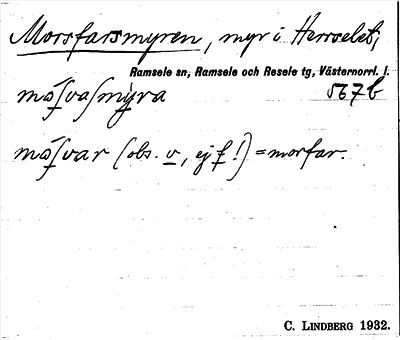 Morsfarsmyren, myr i Herrselet,
Ramsele sn, Ramsele och Resele tg, Västernorrl. l.
567b
(obs. v, ej f!) = morfar.
C. LINDBERG 1932.